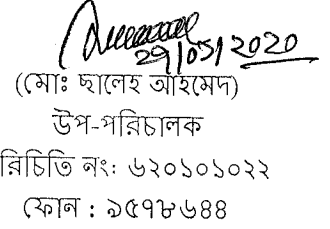 29/01/2020
(মোঃ ছালেহ আহমেদ)
উপ-পরিচালক
রিচিতি নং: ৬২০১০১০২২
ফোন : ৯৫৭৮৬৪৪